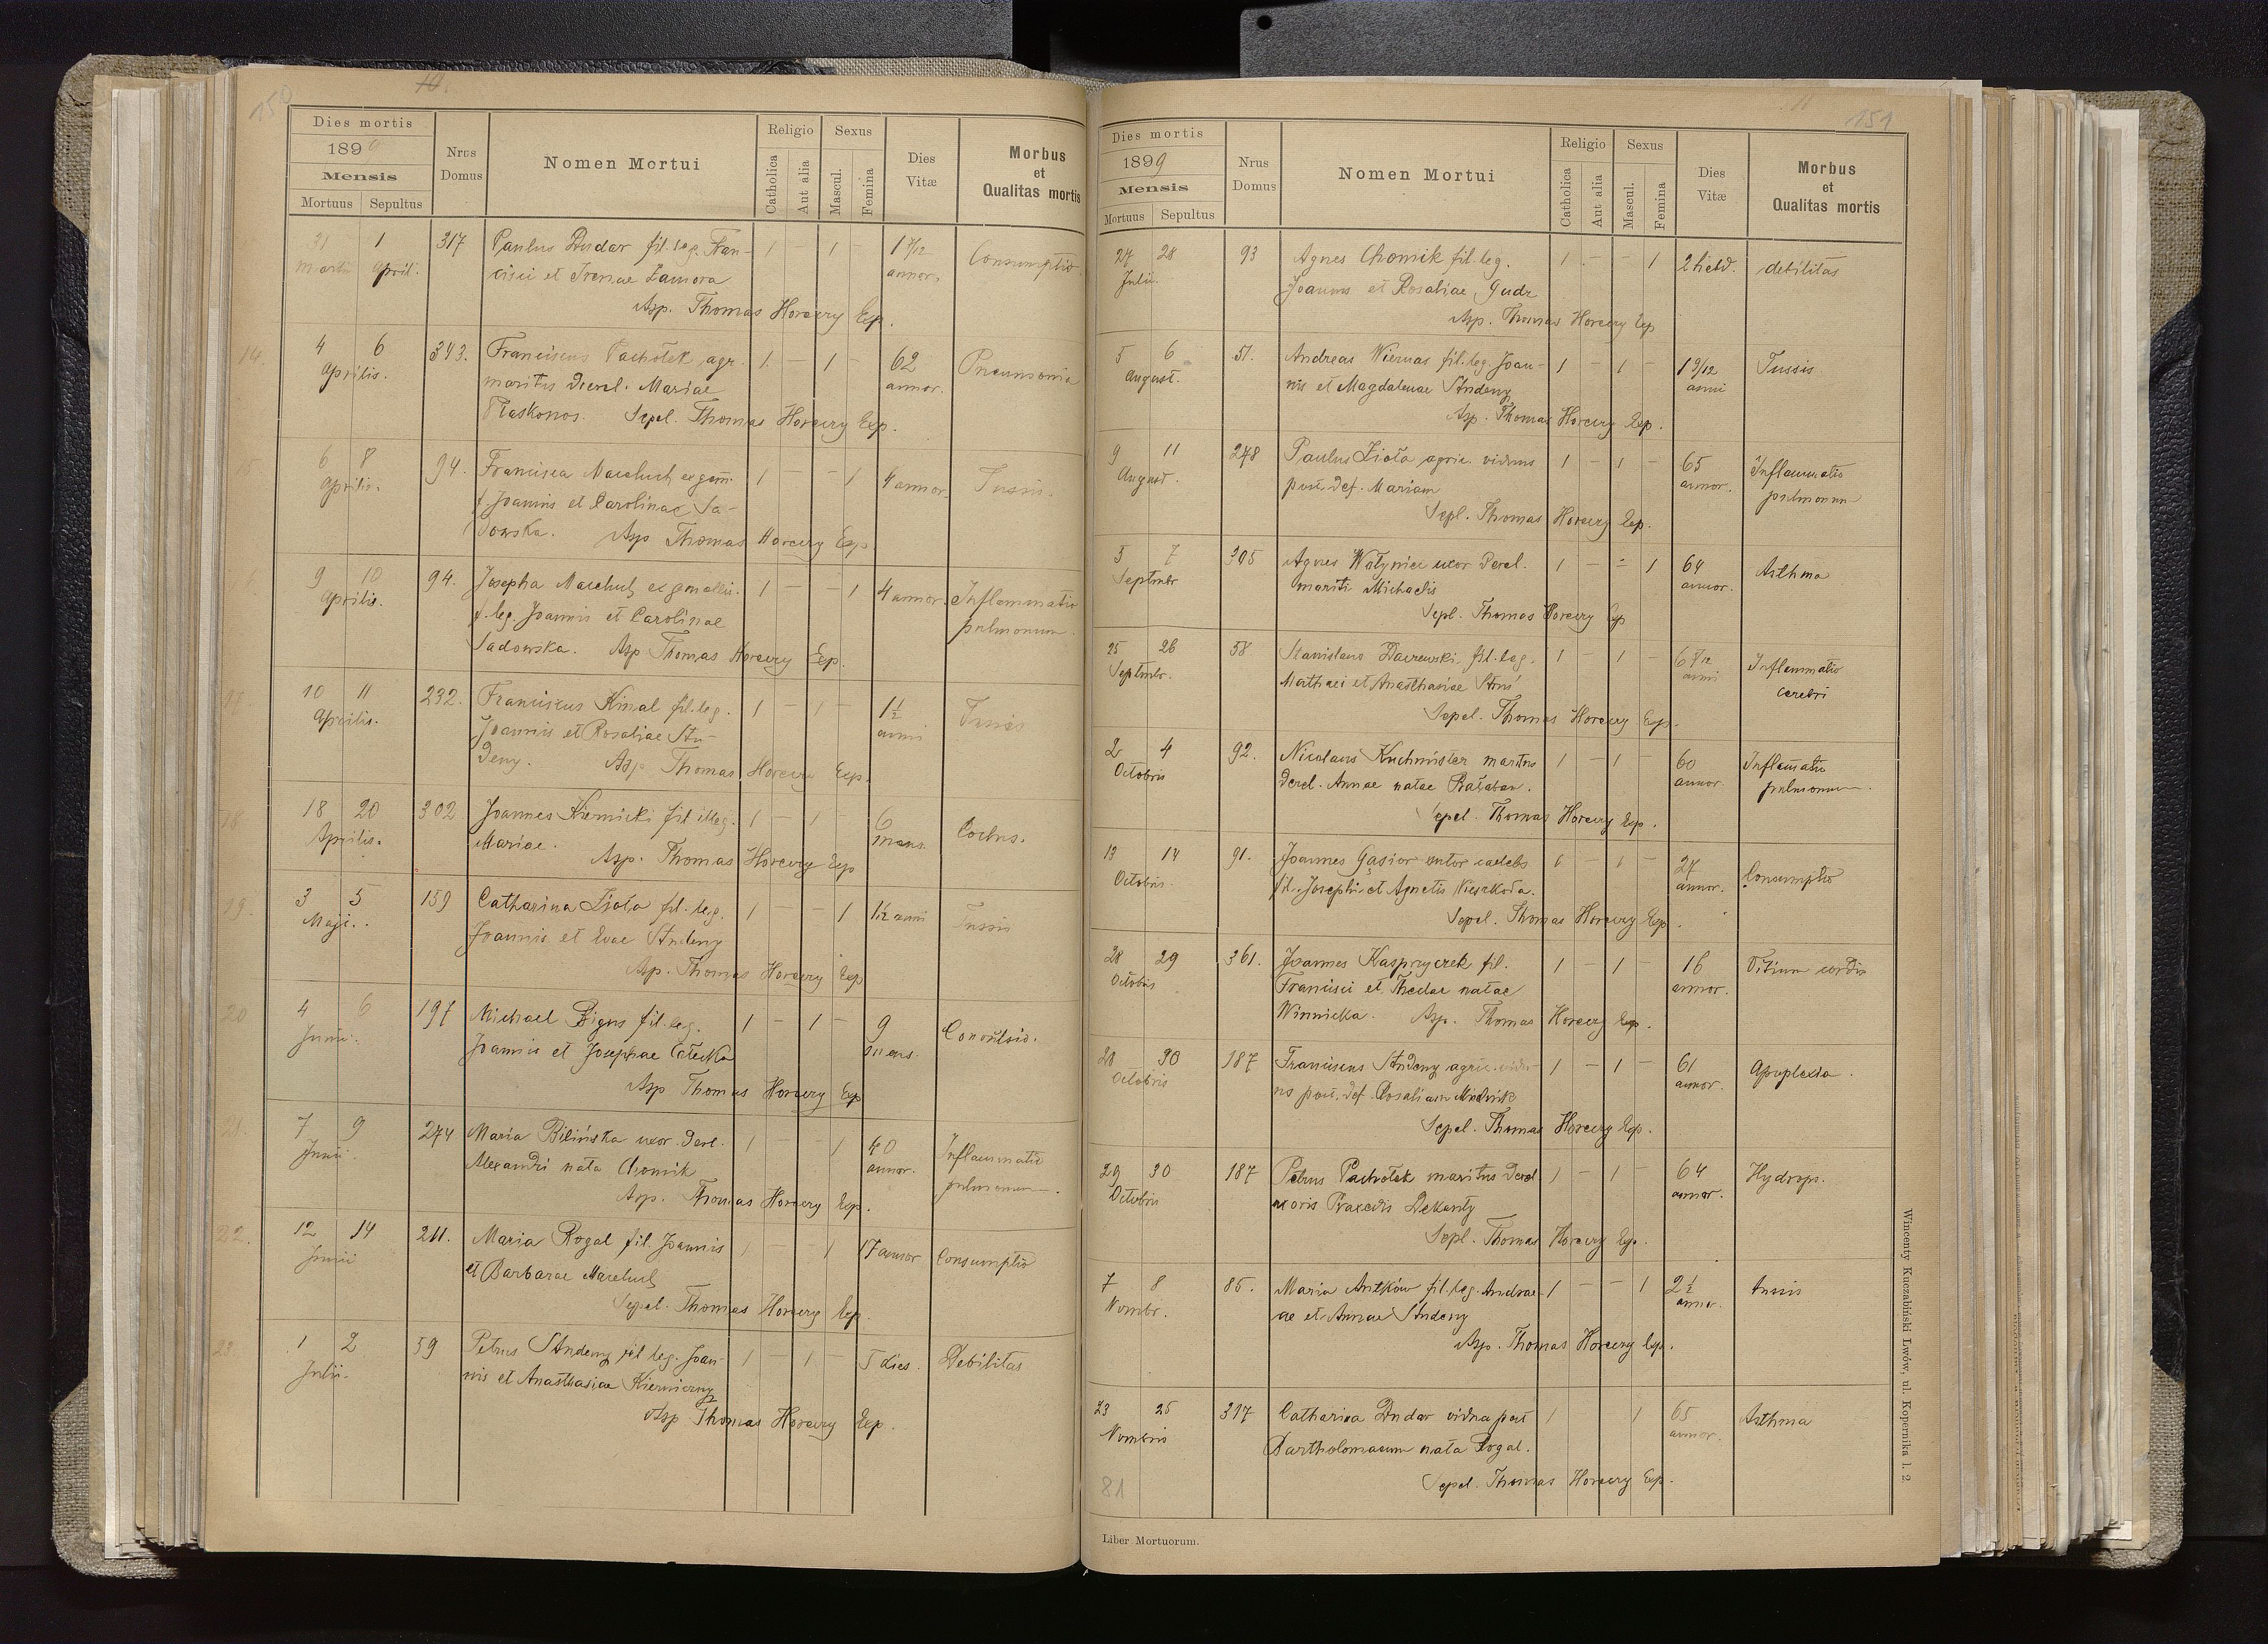 150
10.
Dies mortis
1899
Mensis
Mortuus Sepultus
Nrus Domus
Nomen Mortui
Religio
Catholica
Aut alia
Sexus
Mascul.
Femina
Dies Vitæ
Morbus et Qualitas mortis
31 1 317 Paulus Dudar fil. leg. Fran- 1 — 1 — 1 7/12 Consumptio
Martii April. cisci et Irenae Zamora annor.
Asp. Thomas Horeczy Exp.
14. 4 6 343. Franciscus Pachołek, agr. 1. — 1 — 62 Pneumonia
Aprilis. maritus derel. Mariae annor.
Płaskonos. Sepel. Thomas Horeczy Exp.
15 6 8 94. Francisca Marchut ex gem. 1 — — 1 4 annor. Tussis.
Aprilis. f. Joannis et Carolinae Sa-
dowska. Asp Thomas Horeczy Exp.
9 10 94. Josepha Marchut ex gemellis. 1 — — 1 4 annor. Inflammatio
Aprilis. f. leg. Joannis et Carolinae pulmonum.
Sadowska. Asp Thomas Horeczy Exp.
10 11 232. Franciscus Kimal fil. leg. 1 — 1 — 1½ Tussis
Aprilis. Joannis et Rosaliae Stu- anni
deny. Asp. Thomas Horeczy Exp.
18 18 20 302 Joannes Kiernicki fil illeg. 1 — 1 — 6
Aprilis. Mariae. mens.
Asp. Thomas Horeczy Exp
19. 3 5 159 Catharina Zioła fil. leg. 1 — — 1 1½ anni Tussis
Maji. Joannis et Evae Studeny
Asp. Thomas Horeczy Exp
20 4 6 197 Michael Bigus fil. leg. 1 — 1 — 9 Convulsio.
Junii. Joannis et Josephae mens.
Asp Thomas Horeczy Exp
21. 7 9 274 Maria Bilińska uxor. derel. 1 — — 1 40 Inflammatio
Junii. Alexandri nata Chomik annor. pulmonum.
Asp. Thomas Horeczy Exp.
22. 12 14 211. Maria Rogal fil. Joannis 1 — — 1 17 annor Consumptio
Junii et Barbarae Marchut
Sepel. Thomas Horeczy Exp.
23. 1 2 59 Petrus Studeny fil leg. Joan- 1 — 1 — 5 dies. Debilitas
Julii. nis et Anasthasiae Kierniczny
Asp Thomas Horeczy Exp.
11
151
Dies mortis
1899
Mensis
Mortuus Sepultus
Nrus Domus
Nomen Mortui
Religio
Catholica
Aut alia
Sexus
Mascul.
Femina
Dies Vitæ
Morbus et Qualitas mortis
27 28 93 Agnes Chomik fil. leg. 1 — — 1 2 hebd. debilitas
Julii. Joannis et Rosaliae Gudz
Asp. Thomas Horeczy Exp
5 6 51. Andreas Wiernas fil. leg. Joan- 1 — 1 — 1 9/12 Tussis
August. nis et Magdalenae Studeny anni
Asp. Thomas Horeczy Exp.
9 11 248 Paulus Zioła agric. viduus 1 — 1 — 65 Inflammatio
August. post def. Mariam annor. pulmonum
Sepl. Thomas Horeczy Exp.
5 7 305 Agnes Wołyniec uxor derel. 1 — — 1 64 Asthma
Septmbr mariti Michaelis annor.
Sepl. Thomas Horeczy Exp
25 26 58 Stanislaus fil. leg. 1 — 1 — Inflammatio
Septmbr. Mathaei et Anasthasiae Struś anni cerebri
Sepel. Thomas Horeczy Exp.
2 4 92. Nicolaus Kuchmister maritus 1 — 1 — 60 Inflamatio
Octobris derel. Annae natae Bałaban. annor. pulmonum.
Sepel. Thomas Horeczy Exp.
13 14 91. Joannes Gąsior sutor caelebs 1 — 1 — 27 Consumptio
Octobris. fil. Josephi et Agnetis annor.
Sepel. Thomas Horeczy Exp.
28 29 361. Joannes Kaspryczek fil. 1 — 1 — 16 Vitium cordis
Octobris Francisci et Theclae natae annor.
Winnicka. Asp. Thomas Horeczy Exp.
28 30 187 Franciscus Studeny agric. vidu- 1 — 1 — 61 Apoplexia.
Octobris us post. def. Rosaliam annor.
Sepel. Thomas Horeczy Exp.
29 30 187 Petrus Pachołek maritus derel 1 — 1 — 64 Hydrops.
Octobris uxoris Praxedis Dekanty annor.
Sepl. Thomas Horeczy Exp.
7 8 85. Maria Antków fil. leg. Andrae- 1 — — 1 2½ tussis
Nvmbr. ae et Annae Studeny annor.
Asp. Thomas Horeczy Exp.
23 25 317 Catharina Dudar vidua post 1 1 65 Asthma
Nvmbris Bartholomaeum nata Rogal. annor.
Sepel. Thomas Horeczy Exp.
81
Liber Mortuorum.
Wincenty Kuczabiński Lwów, ul. Kopernika l. 2